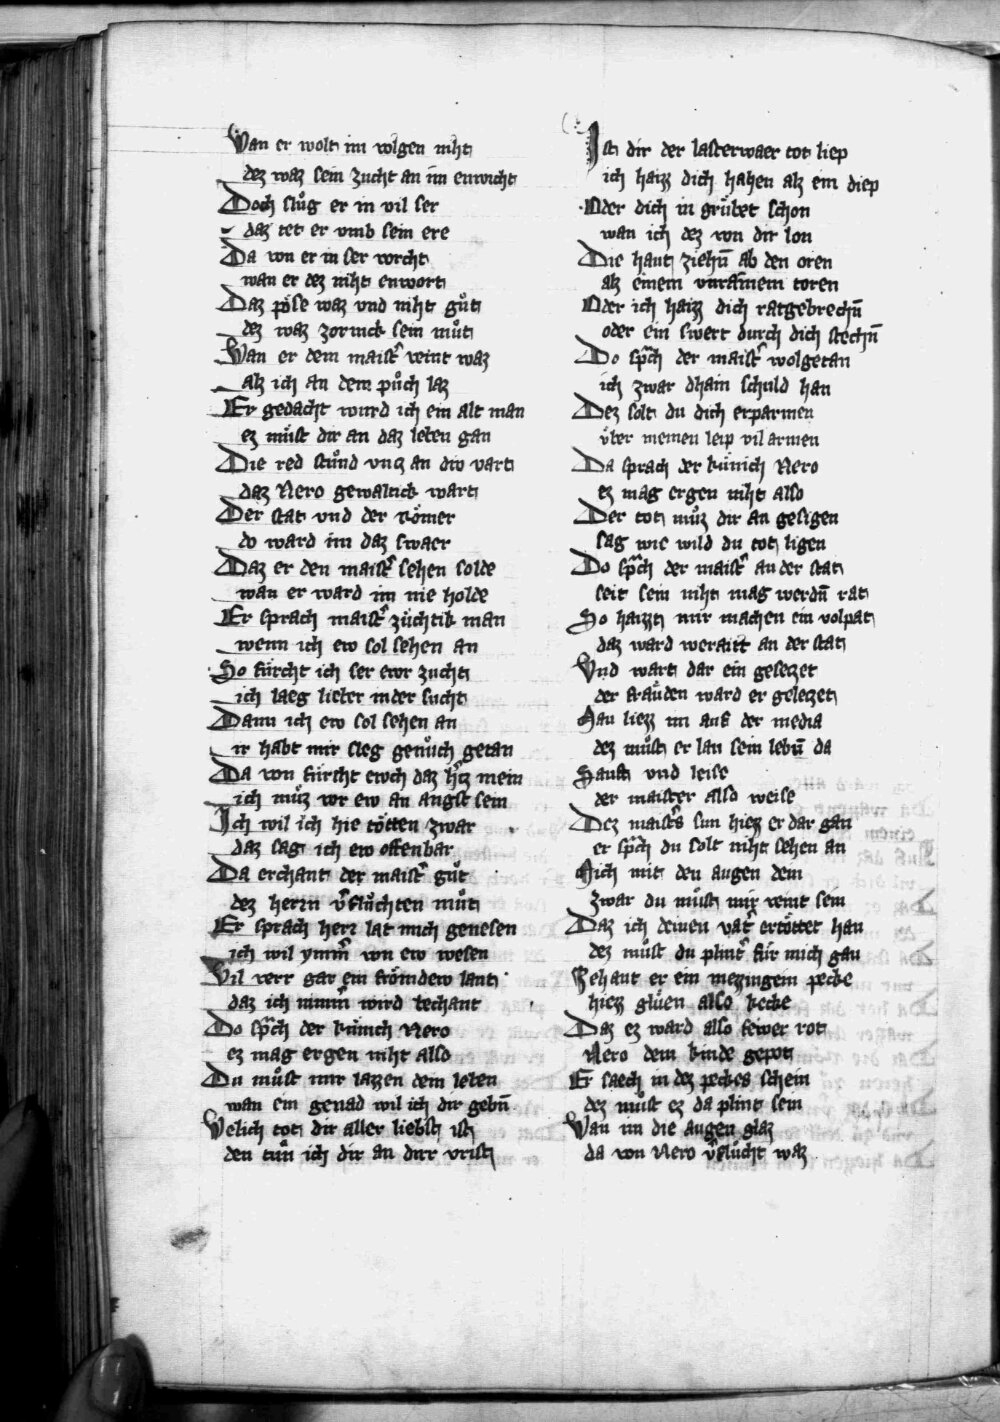 Wan er wolt im volgen niht
dez waz sein zucht an im enwicht
Doch slůg er in vil ser
daz tet er vmb sein ere
Da von er in ser vorcht
wan er dez niht enwort
Daz pöse waz vnd niht gůt
dez waz zornick sein můt
Wan er dem maistˀ veint waz
alz ich an dem půch laz
Er gedacht wurd ich ein alt man
ez můst dir an daz leben gan
Die red stůnd vncz an div vart
daz Nero gewaltick wart
Der stat vnd der Römer
do ward im daz swaer
Daz er den maistˀ sehen solde
wan er ward im nie holde
Er sprach maistˀ züchtik man
wenn ich ew sol sehen an
So fürcht ich ser ewr zucht
ich laeg lieber in der sucht
Dann ich ew sol sehen an
ir habt mir sleg genůch getan
Da von fürcht ewch daz hˀcz mein
ich můz vor ew an angst sein
Ich wil ich hie tötten zwar
daz sag ich ew offenbar
Da erchant der maistˀ gůt
dez herrn vˀflůchten můt
Er sprach herr lat mich genesen
ich wil ymm̄ von ew wesen
Vil verr gar ein frömdew lant
daz ich nimm̄ wird bechant
Do sp̄ch der künich Nero
ez mag ergen niht also
Du můst mir lazzen dein leben
wan ein genad wil ich dir gebn̄
Welich tot dir aller liebst ist
den tůn ich dir an dirr vrist
Ist dir der lasterwaer tot liep
ich haizz dich hahen alz ein diep
Oder dich in grübet schon
wan ich dez von dir lon
Die haut ziehn̄ ab den oren
alz einem vnrainem toren
Oder ich haizz dich ratgebrechn̄
oder ein swert durch dich stechn̄
Do sp̄ch der maistˀ wolgetan
ich zwar dhain schuld han
Dez solt du dich erparmen
über meinen leip vil armen
Da sprach der künich Nero
ez mag ergen niht also
Der tot můz dir an gesigen
sag wie wild du tot ligen
Do sp̄ch der maistˀ an der stat
seit sein niht mag werdn̄ rat
So haizzt mir machen ein volpat
daz ward weraitt an der stat
Vnd wart dar ein gesetzet
der fräuden ward er geletzet
Man liezz im auf der media
dez můst er lan sein lebn̄ da
Sanft vnd leise
der maister also weise
Dez maistˀs sun hiez er dar gan
er sp̄ch du solt niht sehen an
Mich mit den augen dein
zwar du můst mir veint sein
Daz ich deinen vatˀ ertöttet han
dez můst du plintˀ für mich gan
Behant er ein mezzingein pecke
hiezz glüen also kecke
Daz ez ward also fewer rot
Nero dem kinde gepot
Er saech in dez peckes schein
dez můst ez da plint sein
Wan im die augen glaz
da von Nero vˀflůcht waz